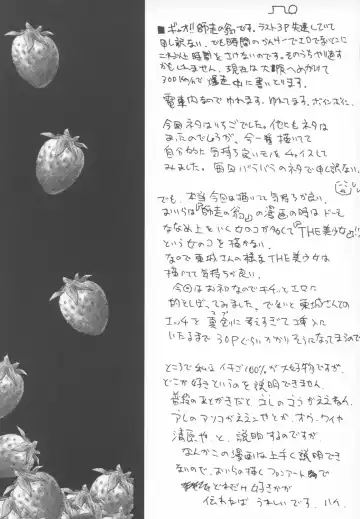 ■ギャオ!!師走の翁です。ラスト3P失速していて
申し訳ない。でも時間の
これ以上時間をさけないのです。そのうちやり直す
かもしれません。現在は大阪へめがけて
300km/hで爆走中に書いとります。
電車内なのでゆれます。ゆれてます。
今回ネタはいちごでした。他にもネタは
あったのでしょうが、今一番描いてて
自分的に気持ち良いモノをチョイスして
みました。毎回バラバラのネタで申し訳ない。
でも、本当今回は描いてて気持ちが良い。
おいらは「師走の翁」の漫画の時はドーも
ななめ上をいく女のコが多くて「THE美少女」!!
という女のコを描かない。
なので東城さんの様なTHE美少女は
描いてて気持ちが良い。
今回はお初なのでキチッとエロに
的をしぼってみました。でないと東城さんの
エッチを真剣に考えすぎて挿入に
いたるまで30Pぐらいかかりそうになってまうので
ところで私はイチゴ100%が大好物ですが、
どこが好きというのを説明できません。
普段のあとがきだとコレのココがええねん、
アレのアソコがええンやとか、オウ、ワイや
清原や、と、説明するのですが
なんかこの漫画は上手く説明でき
ないので、おいらの描くファンアート
どれだけ好きかが
伝われば うれしいです。ハイ。